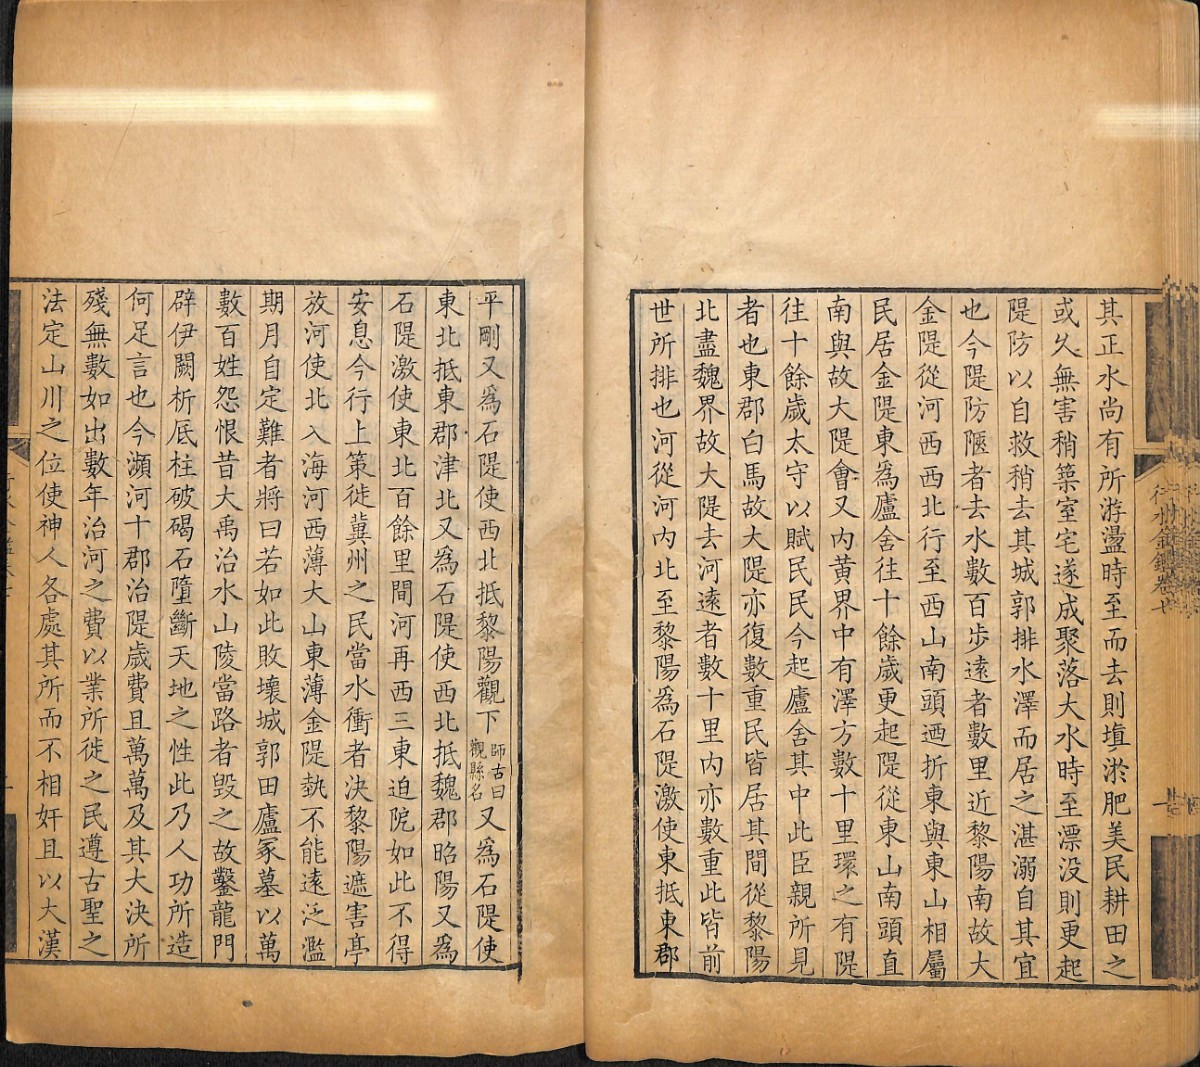 其正水尚有所游盪時至而去則塡淤肥美民耕田之
或久無害稍築室宅遂成聚落大水時至漂没則更起
隄防以自救稍去其城郭排水澤而居之湛溺自其宜
也今隄防陿者去水數百步遠者數里近黎陽南故大
金隄從河西西北行至西山南頭迺折東與東山相屬
民居金隄東爲廬舍往十餘歲更起隄從東山南頭直
南與故大隄會又内黄界中有澤方數十里環之有隄
往十餘歲太守以賦民民今起廬舍其中此臣親所見
者也東郡白馬故大隄亦復數重民皆居其間從黎陽
北盡魏界故大隄去河遠者數十里内亦數重此皆前
世所排也河從河内北至黎陽爲石隄激使東抵東郡
平剛又爲石隄使西北抵黎陽觀下師古曰觀縣名又爲石隄使
東北抵東郡津北又爲石隄使西北抵魏郡昭陽又爲
石隄激使東北百餘里間河再西三東迫阸如此不得
安息今行上策徙冀州之民當水衝者決黎陽遮害亭
放河使北入海河西薄大山東薄金隄埶不能遠泛濫
期月自定難者將曰若如此敗壞城郭田廬冢墓以萬
數百姓怨恨昔大禹治水山陵當路者毁之故鑿龍門
辟伊闕析底柱破碣石墮斷天地之性此乃人功所造
何足言也今瀕河十郡治隄歲費且萬萬及其大決所
殘無數如出數年治河之費以業所徙之民遵古聖之
法定山川之位使神人各處其所而不相奸且以大漢